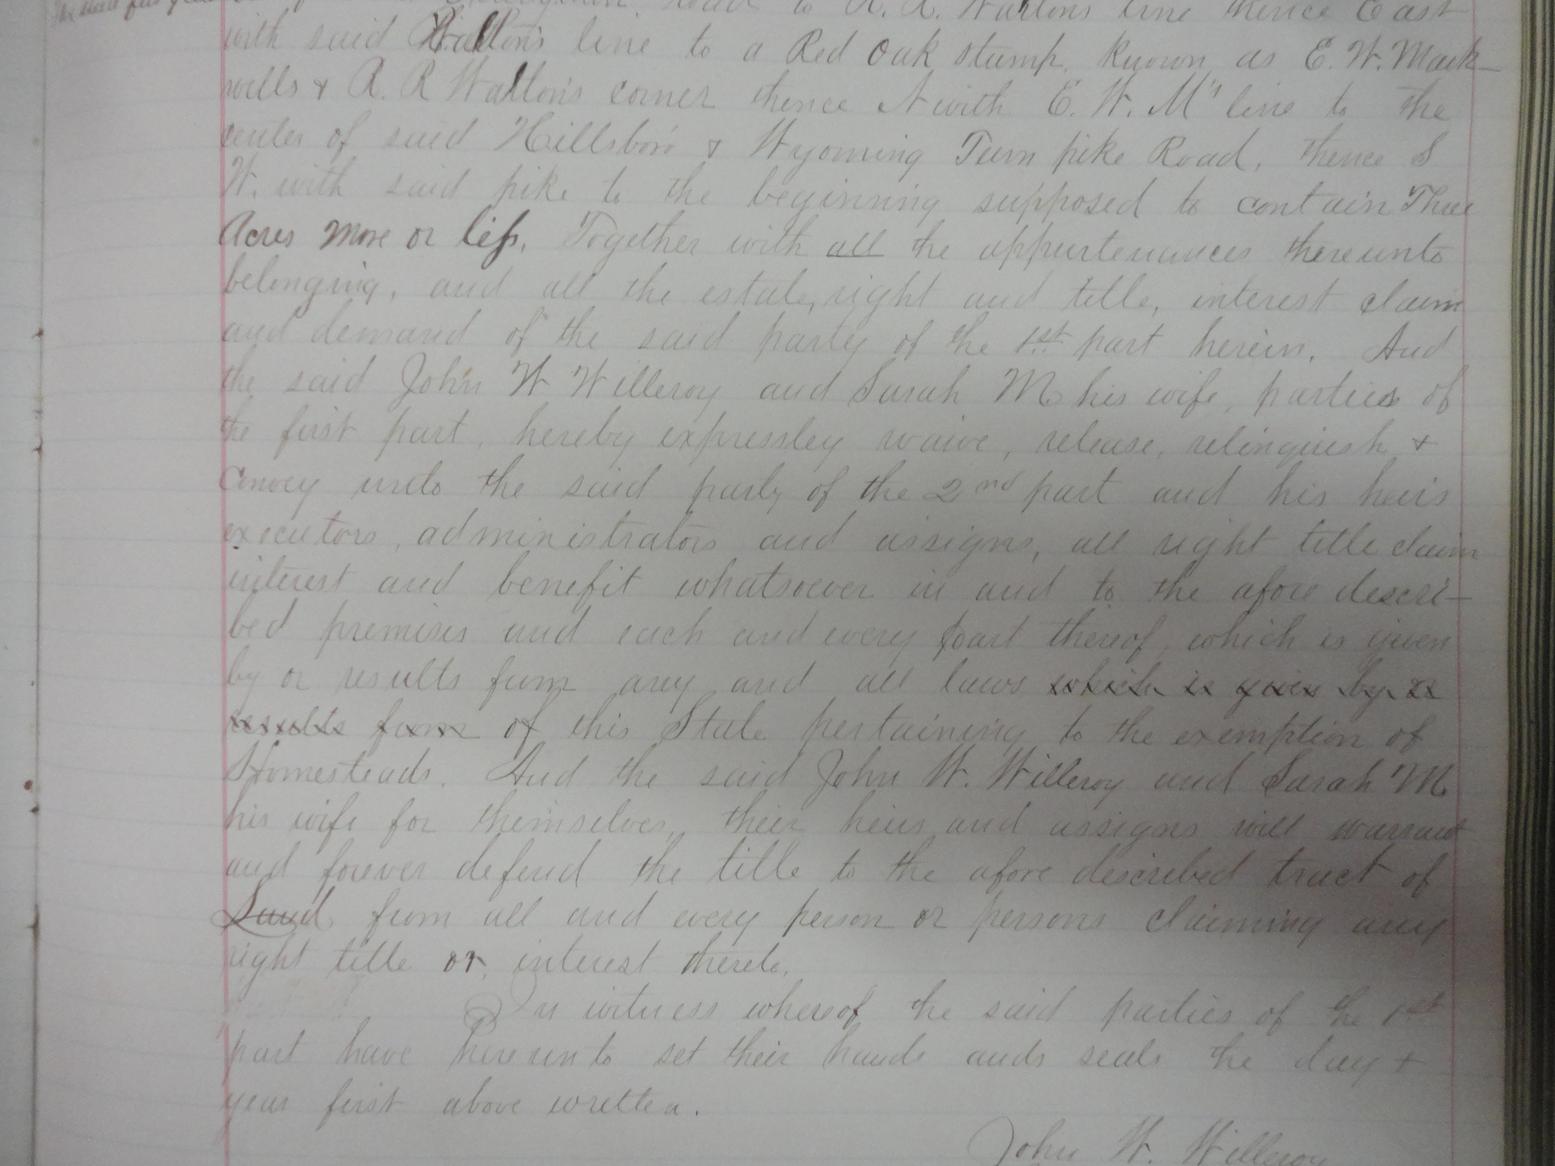 road to R. R. Waltons line thence East
with said Walton's line to a Red Oak stump, known as E. W. Mark-
wells & R. R Walton's corner thence N with E. W. M" line to the
center of said Hillsboro & Wyoming Turn pike Road, thence S
W. with said pike to the beginning supposed to contain Three
Acres more or less, Together with all the appurtenances thereunto
belonging, and all the estate, right and title, interest claim
and demand of the said party of the 1st part herein. And
the said John W Willeroy and Sarah M his wife, parties of
the first part, hereby expressley waive, release, relinquish, &
Convey unto the said party of the 2nd part and his heirs
executors, administrators and assigns, all right title claim
interest and benefit whatsoever in and to the afore descri-
bed premises and each and every part thereof, which is given
by or results from any and all laws which is given by or
results from of this State pertaining to the exemption of
Homesteads. And the said John W. Willeroy and Sarah M
his wife for themselves, their heirs and assigns will warrant
and forever defend the title to the afore described tract of
Land from all and every person or persons claiming any
right title or, interest thereto.
In witness whereof the said parties of the 1st
part have hereunto set their hands and seals the day &
year first above written.
John W. Willeroy